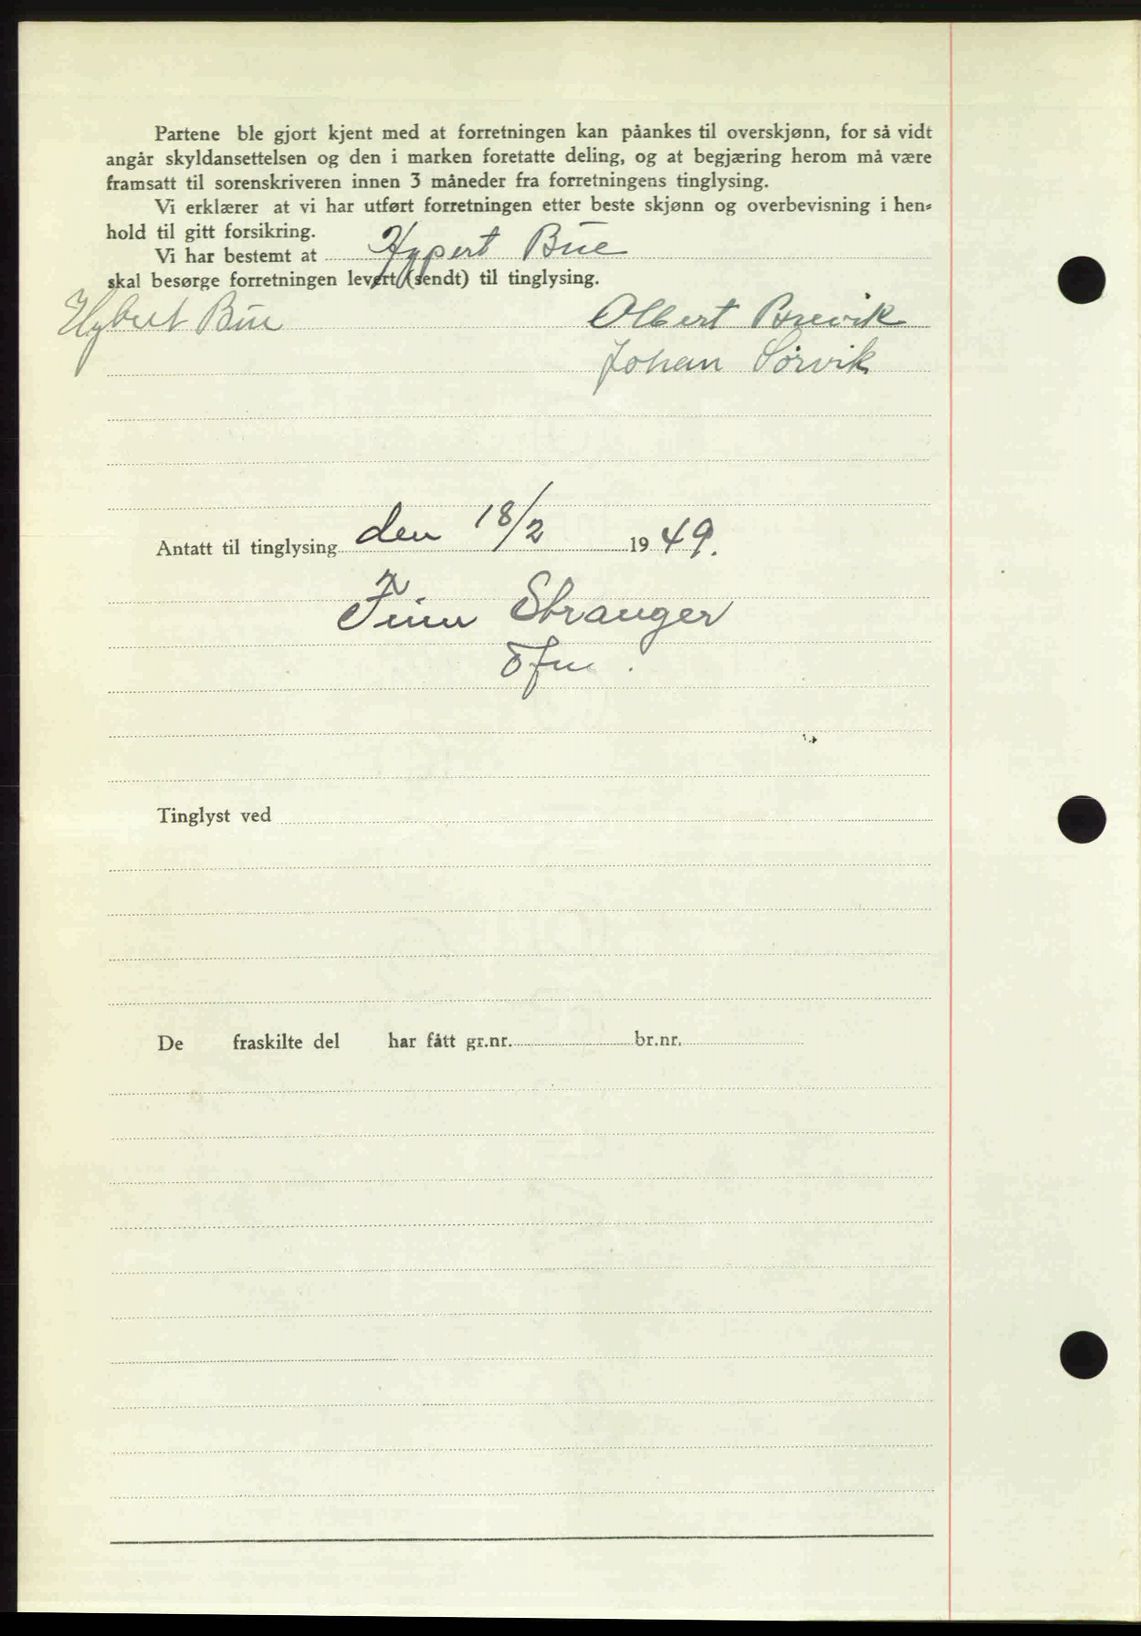 Partene ble gjort kjent med at forretningen kan påankes til overskjønn, for så vidt
angår skyldansettelsen og den i marken foretatte deling, og at begjæring herom må være
framsatt til sorenskriveren innen 3 måneder fra forretningens tinglysing.
Vi erklærer at vi har utført forretningen etter beste skjønn og overbevisning i hen-
hold til gitt forsikring.
Vi har bestemt at Hypert Bue
skal besørge forretningen levert (sendt) til tinglysing.
Hybert Bue Albert Brevik
Johan Sørvik
Antatt til tinglysing den 18/2 1949.
Finn Stranger
Tinglyst ved
De fraskilte del har fått gr.nr. br.nr.